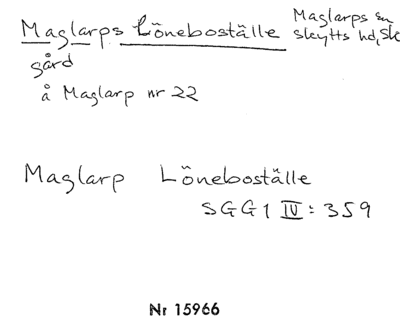 Maglarps Löneboställe
Maglarps sn
skytts hd, Sk
gård
å Maglarp nr 22
Maglarp Löneboställe
SGG1 IV: 359
Nr 15966